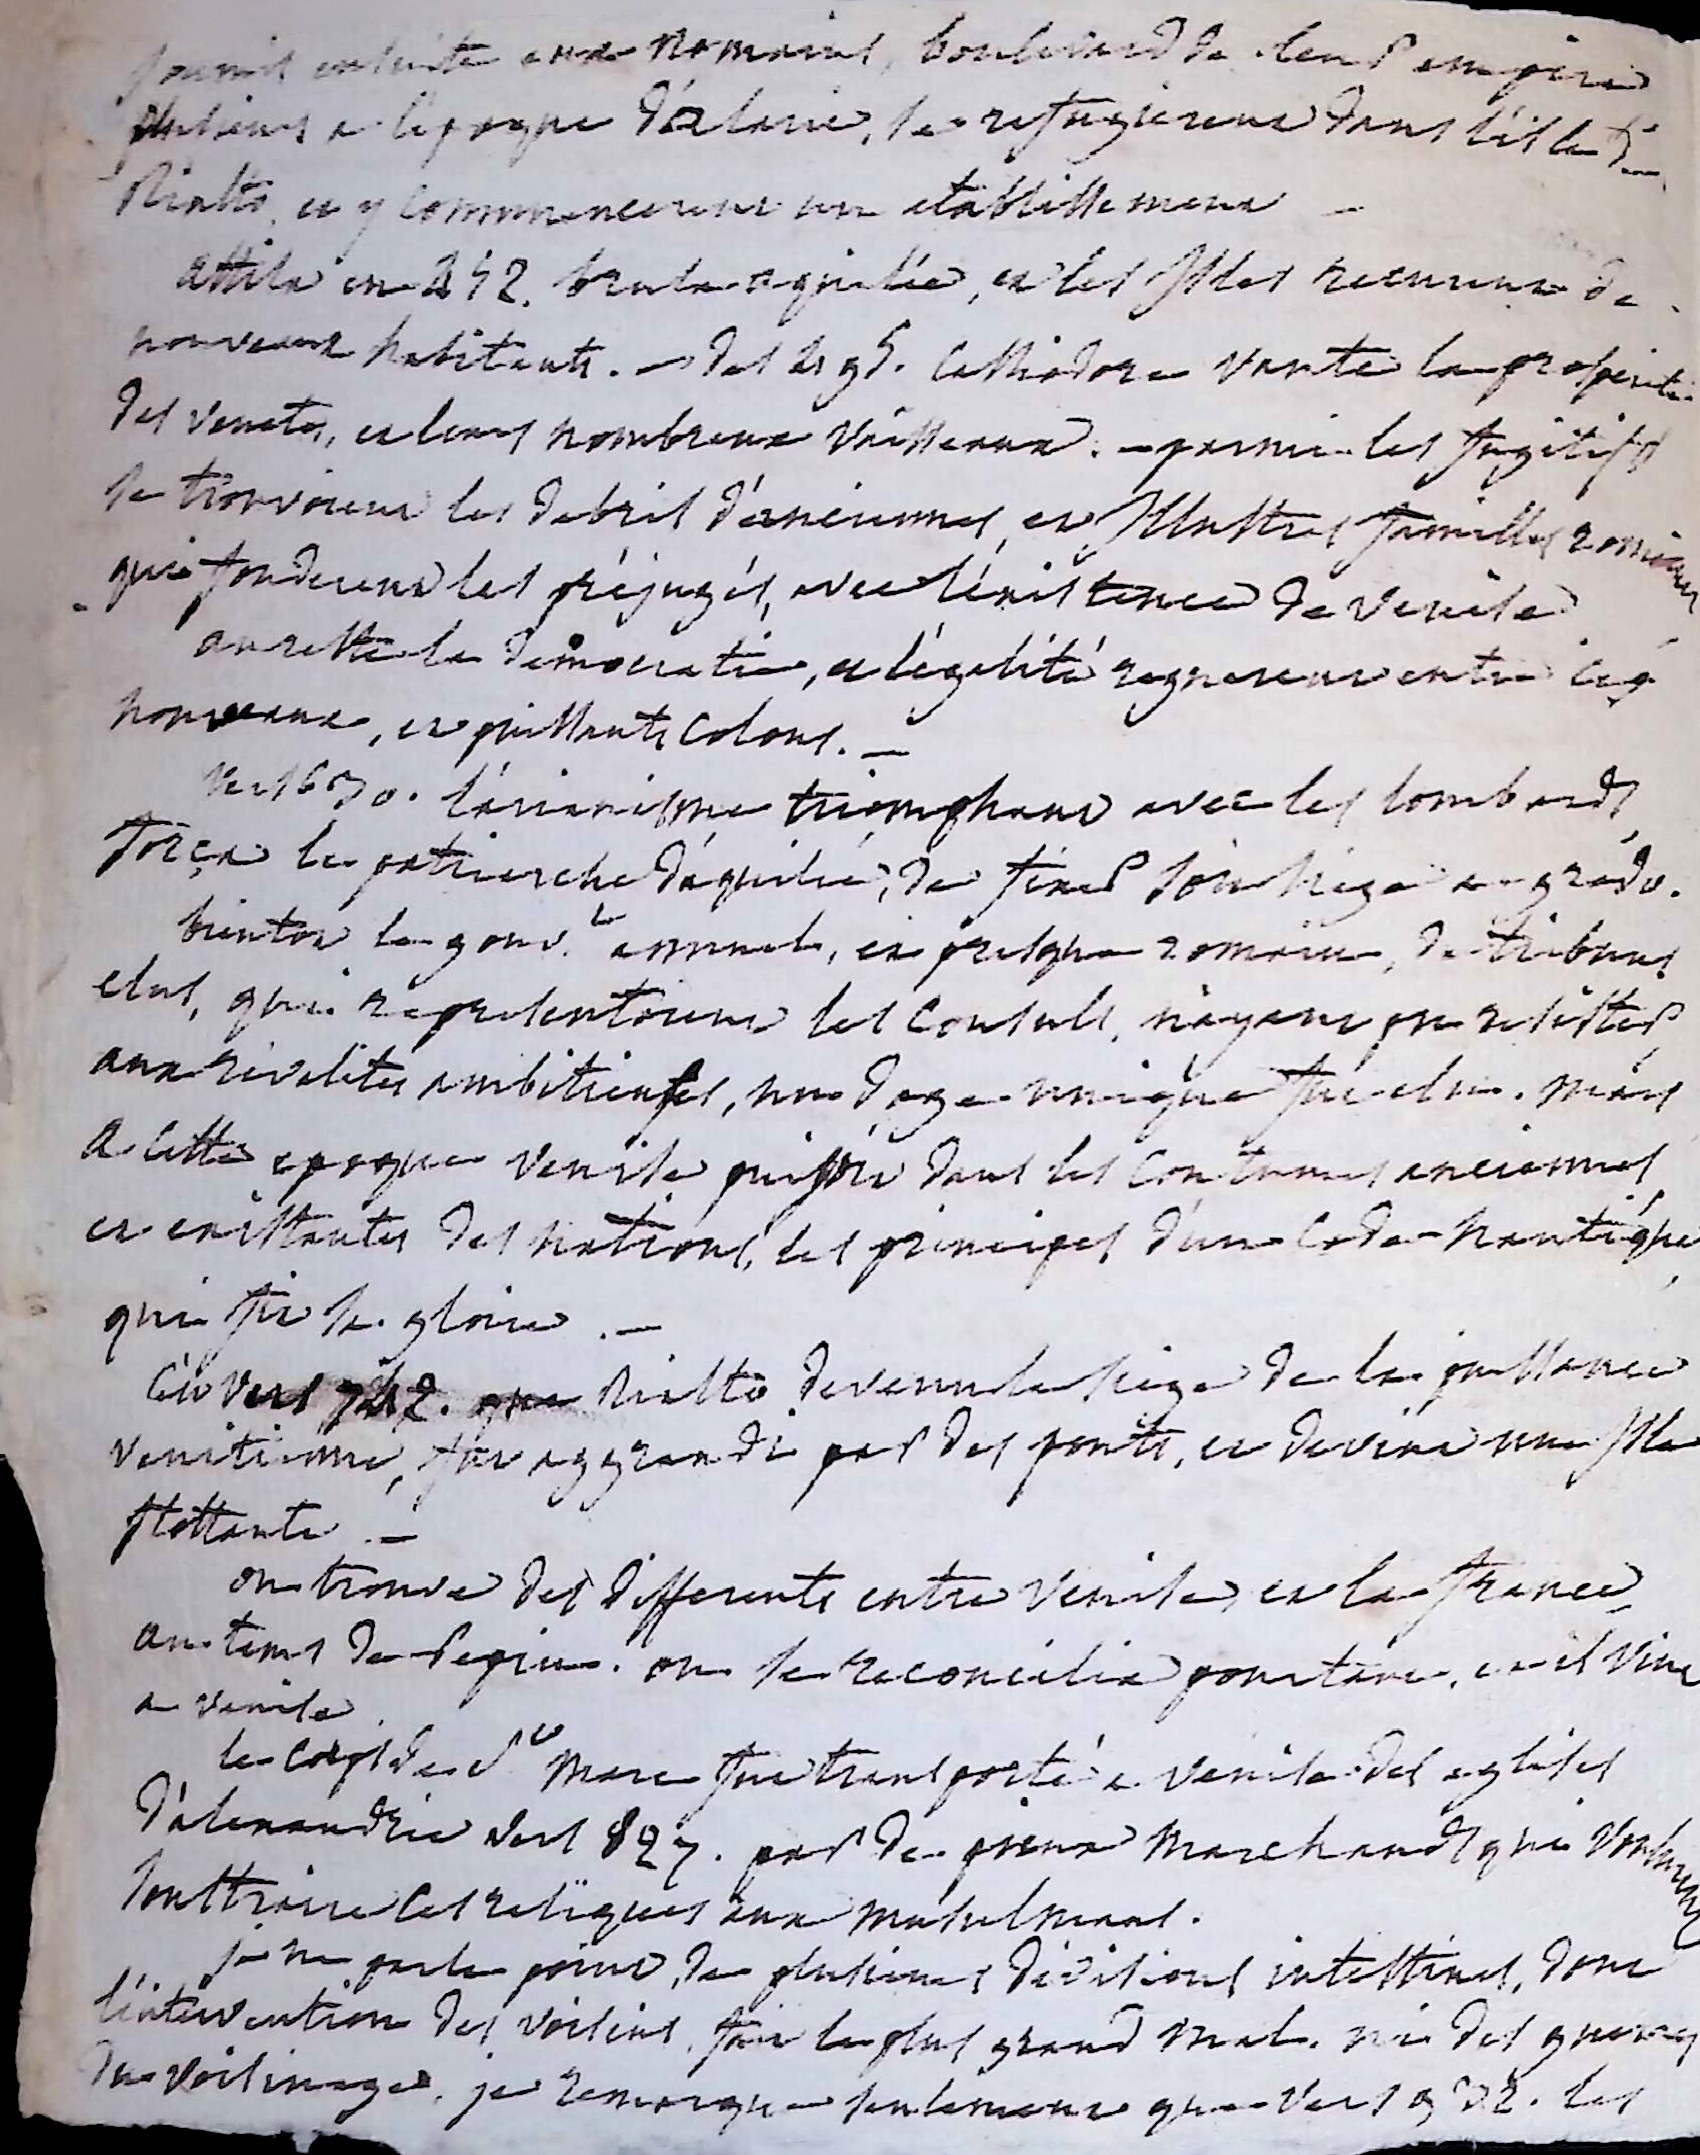 soumis ensuite aux Romains, boulevard de leur empire
plusieurs a l'epoque d'alaric, se refugierent dans l'isle de
Rialto, et y commencerent un etablissement –
attila en 452. brula aquilée, et les Isles recurent de
nouveaux habitants. – des 495. Cassiodore vante la prosperité
des venetes, et leurs nombreux vaisseaux. – parmi les fugitifs
se trouvoient les debris d'anciennes, et Illustres familles romaines
qui fonderent les préjugés, avec l'existence de venise
au reste la démocratie, et légalité regnerent entre ces
nouveaux, et puissants colons. –
vers 630. l'arianisme triomphant avec les lombards,
força le patriarche d'aquilée, de fixer son siege a grado.
bientot le gouv.t annuel, et presque romain, de tribuns
elus, qui representoient les consuls, n'ayant pu resister
aux rivalités ambitieuses, un doge unique fut elu. mais
a cette epoque venise puisoit dans les coutumes anciennes,
et existantes des nations, les principes d'un code nautique
qui fit sa gloire. –
C'est vers 742. que Rialto devenu le siege de la puissance
venitienne, fut aggrandi par des ponts, et devint une Isle
flottante –
on trouve des differents entre venise, et la france,
au tems de Pepin. on se reconcilia pourtant, et il vint
a venise.
le corps de St Marc fut transporté a venise des eglises
d'alexandrie vers 827. par de pieux marchands qui voulurent
soustraire ces reliques aux musulmans.
je ne parle point, de plusieurs divisions intestines, dont
l'intervention des voisins, fait le plus grand mal. ni des guerres
du voisinage. je remarque seulement que vers 932. les